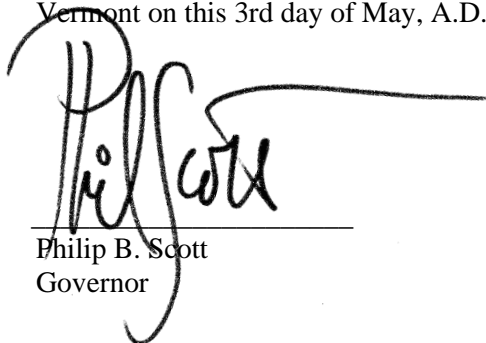 Vermont on this 3rd day of May, A.D.
Phil Scott
Philip B. Scott
Governor